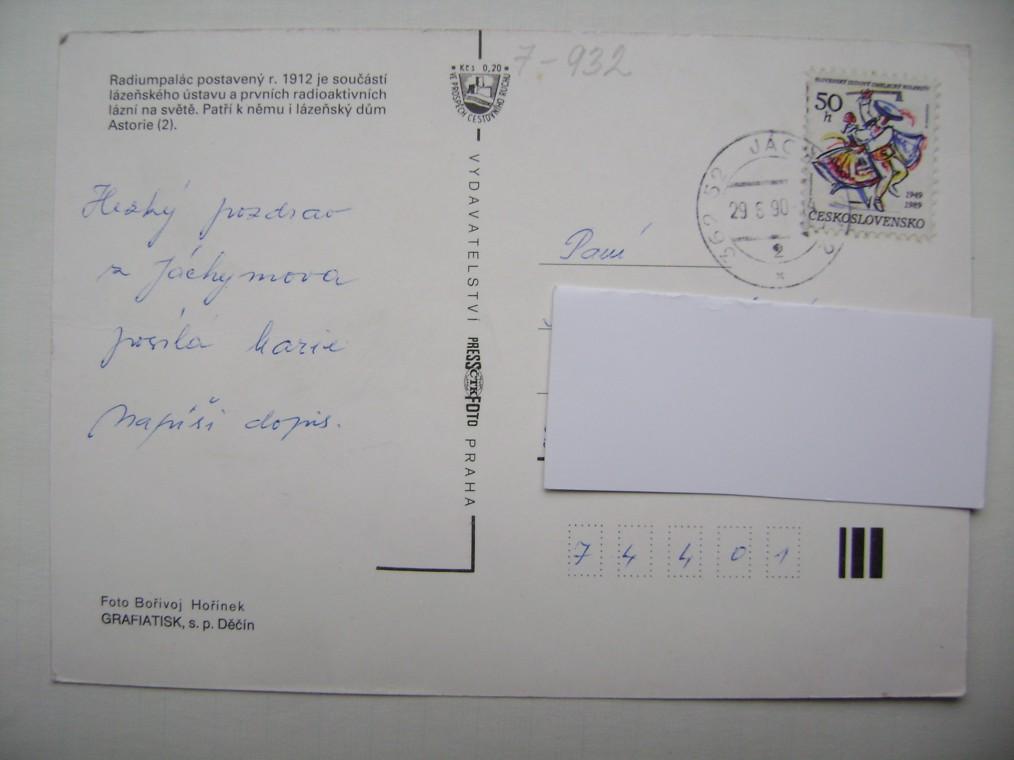 Radiumpalác postavený r. 1912 je součástí
lázeňského ústavu a prvních radioaktivních
lázní na světě. Patří k němu i lázeňský dům
Astorie (2).
Hezký pozdrav
z Jáchymova
posílá Marie
Napíši dopis.
Foto Bořivoj Hořínek
GRAFIATISK, s. p. Děčín
Kčs 0,20
VE PROSPĚCH CESTOVNÍHO RUCHU
VYDAVATELSTVÍ PRESSFOTO PRAHA
ČTK
7-932
50 h
1949
1989
ČESKOSLOVENSKO
362 52 JÁC
29 6 90
2
Paní
7 4 4 0 1